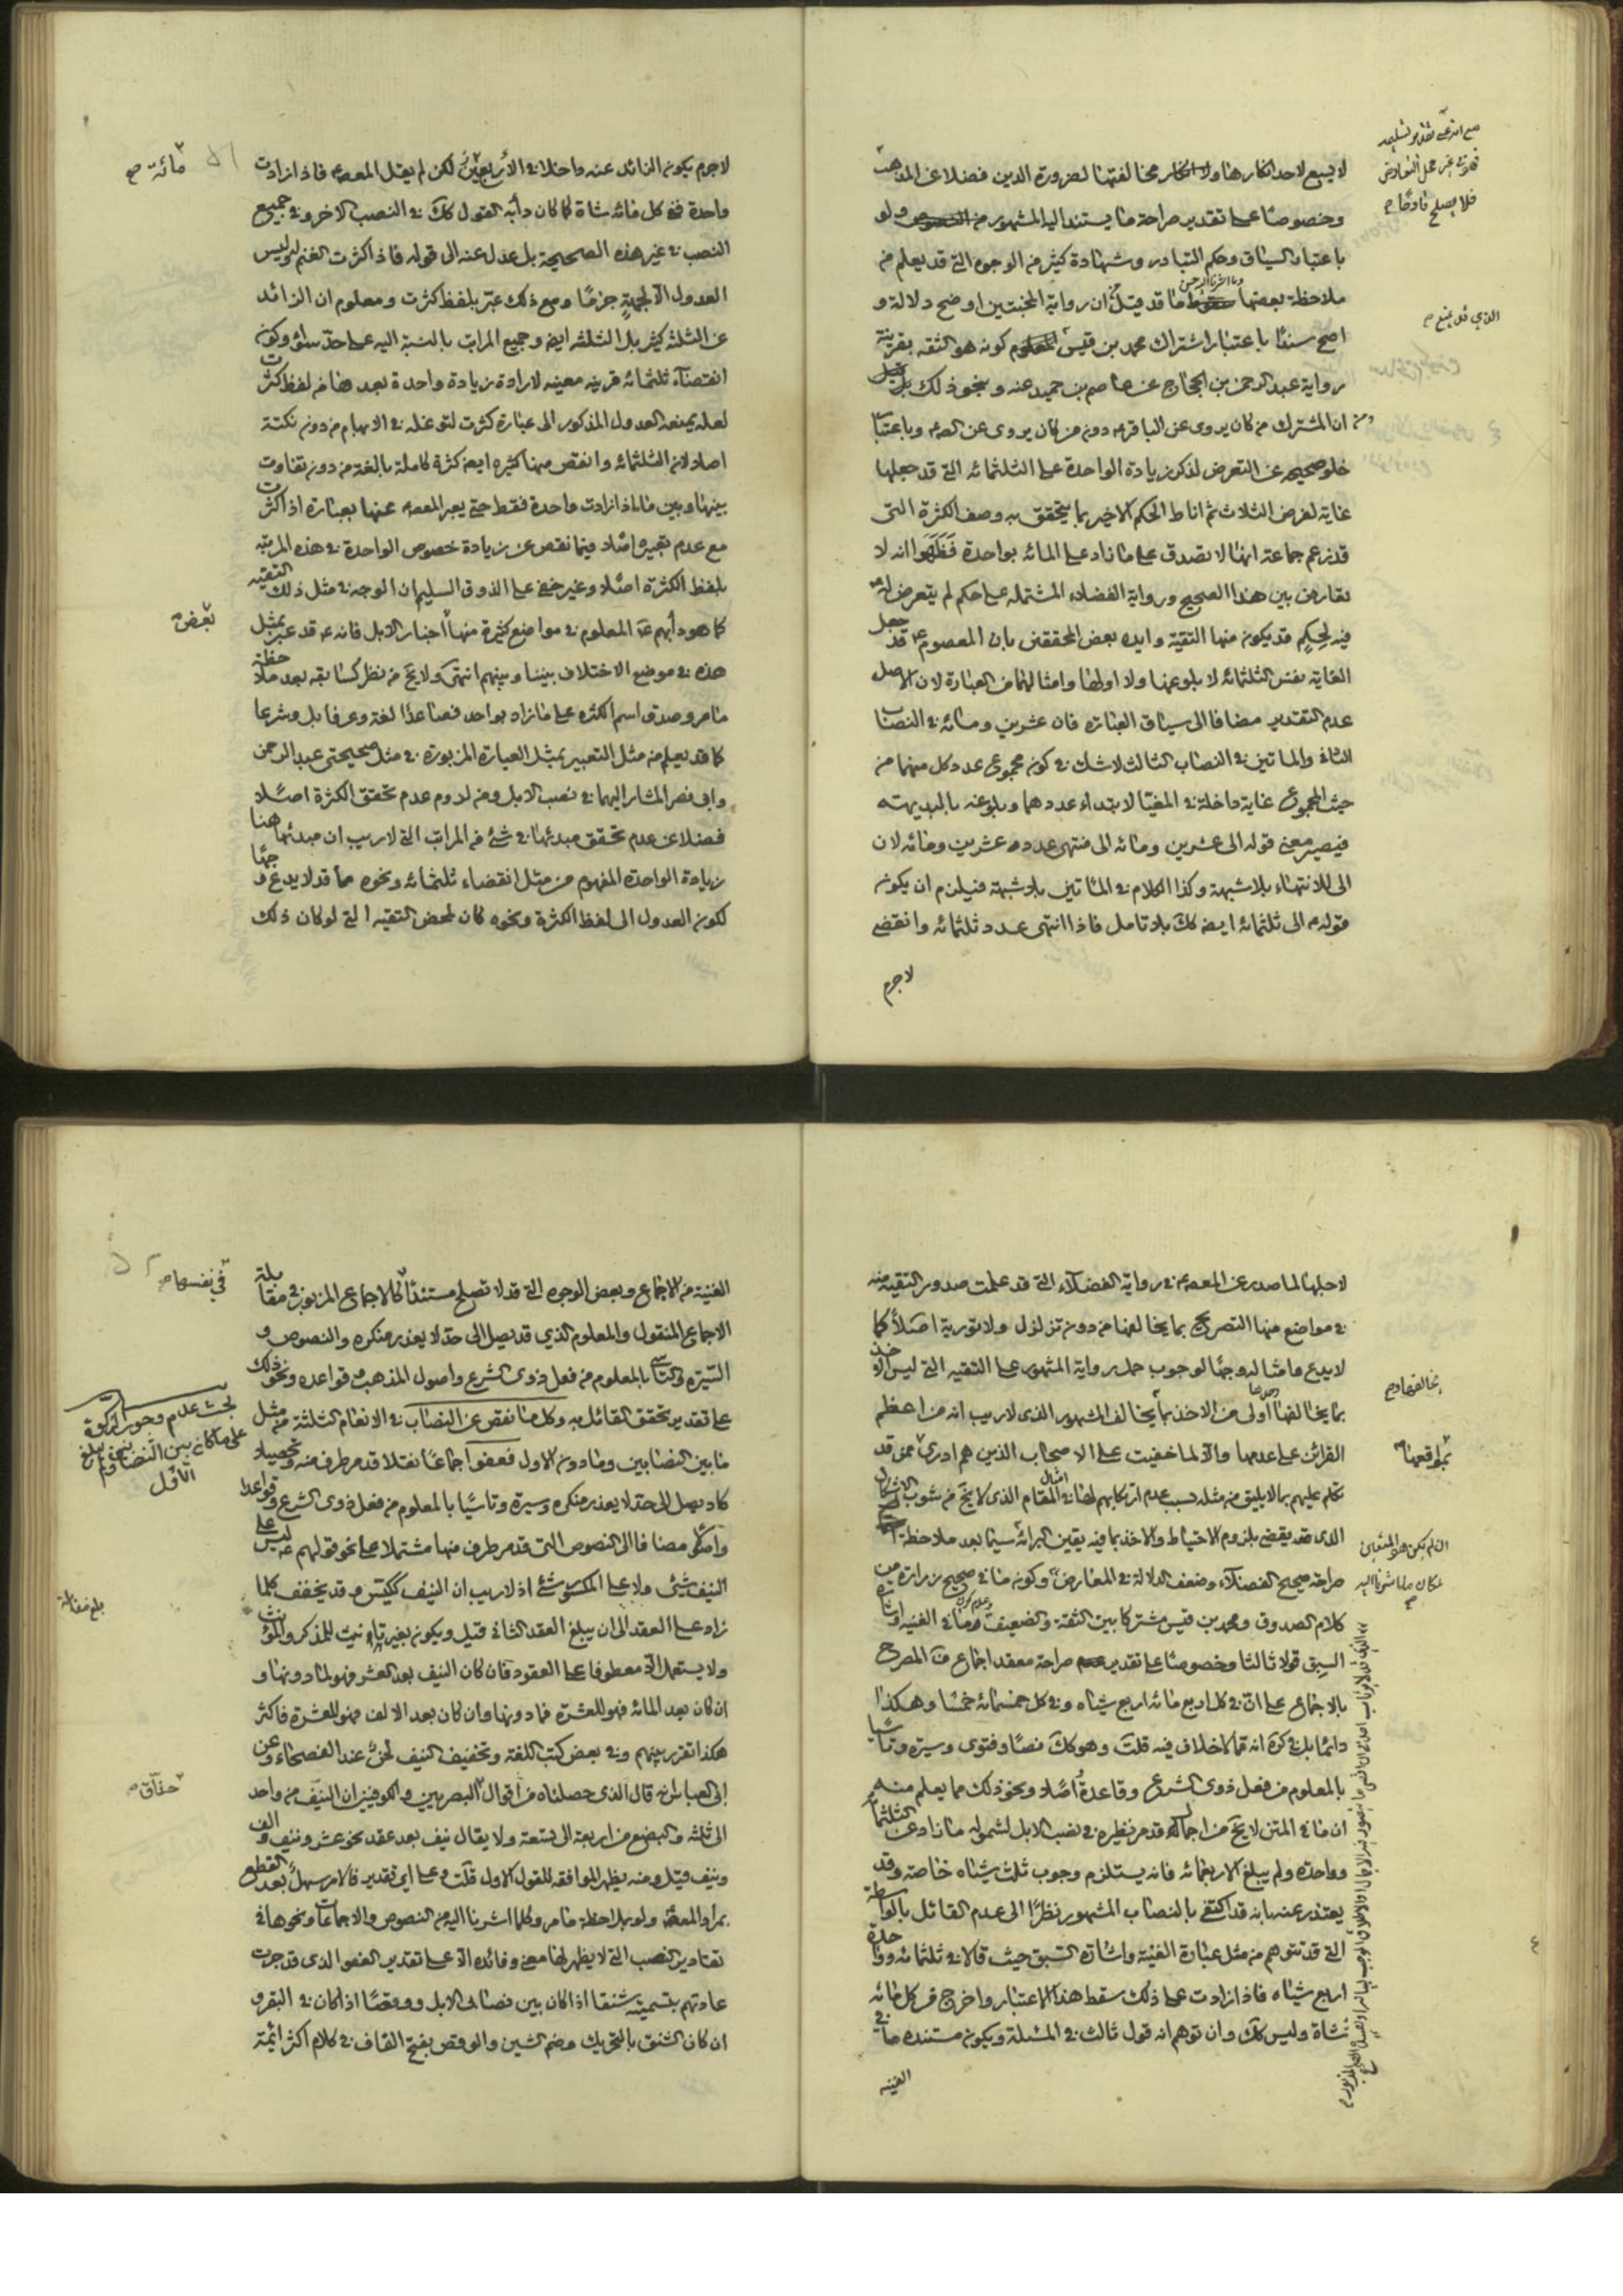 لا يسع لاحد انكارها ولا انكار مخالفتها لضرورة الدين فضلا عن المذهب
وخصوصًا على تقدير صراحة ما يستند اليه المشهور من النصوص ولو
باعتبار السياق وحكم التبادر وشهادة كثير من الوجوه التى قد يعلم من
ملاحظة بعضها ما قد قيل من ان رواية المحنتين اوضح دلالة و
اصح سندًا باعتبار اشتراك محمد بن قيس كونه هو الثقه بقرينة
رواية عبد الرحمن بن الحجاج عن عاصم بن حميد عنه ونحو ذلك بل قيل
ان المشترك من كان يروى عن الباقر ع دون من كان يروى عن الصه وباعتبار
خلو صحيحه عن التعرض لذكر زيادة الواحدة على الثلثمائه التى قد جعلها
غاية لفرض الثلاث ثم اناط الحكم الاخير بما يتحقق به وصف الكثرة التى
قد زعم جماعة انها لا تصدق على ما زاد على المائه بواحدة فظهر انه لا
تعارض بين هذا الصحيح ورواية الفضلاء المشتمله على حكم لم يتعرض له
فيه لحكم قد يكون منها التقية وايده بعض المحققين بان المعصوم ع قد جعل
الغاية نفس الثلثمائه لا بلوغها ولا اولها وامثالهما من العبارة لان الاصل
عدم التقدير مضافا الى سياق العباره فان عشرين ومائه في النصاب
الثانى والماتين في النصاب الثالث لا شك في كونه مجموع عدد كل منهما من
حيث المجموع غاية داخلة في المغيا لابتداء عددهما وبلوغه بالبديهه
فيصير معنى قوله الى عشرين ومائه الى منتهى عدده عشرين ومائه لان
الى للانتهاء بلا شبهة وكذا الكلام في المأتين بلا شبهة فيلزم ان يكون
قوله ع الى ثلثمائه ايضه كك بلا تامل فاذا انتهى عدد ثلثمائه وانقضى
لاجرم
مع انه على تقدير تسليمه
فلا يصلح قادحًا م
الذي قد يمنع م
لاجرم يكون الزائد عنه داخلا في الأربعين لكن لم يقل المعصه فاذا زادت
واحدة ففى كل مائه شاة كما كان دأبه القول كك في النصب الاخر وفي جميع
النصب في غير هذه الصحيحة بل عدل عنه الى قوله فاذا كثرت الغنم وليس
العدول الا لجهةٍ جزمًا ومع ذلك عبّر بلفظ كثرت ومعلوم ان الزائد
عن الثلثه كثير بل الثلثه ايضه وجميع المراتب بالنسبة اليه على حدّ سواء وكون
انقضاء ثلثمائه قرينه معينه لارادة زيادة واحدة بعد هنا من لفظ كثرت
لعله يمنعه العدول المذكور الى عبارة كثرت لتوغله في الابهام من دون نكتة
اصلا لان الثلثمائه وانقص منها كثيره ايضه كثرة كاملة بالغة من دون تفاوت
بينها وبين ما اذا زادت واحدة فقط حتى يعبر المعصه عنها بعبارة اذا كثرت
مع عدم تعبيره اصلا فيما نقص عن زيادة خصوص الواحدة في هذه المرتبه
بلفظ الكثرة اصلًا وغير خفى على الذوق السليم ان الوجه في مثل ذلك التقيه
كما هو دأبهم ع المعلوم في مواضع كثيرة منها اخبار الابل فانه ع قد عبر بمثل
هذه في موضع الاختلاف بيننا وبينهم انتهى ولا يخ من نظر كسابقه بعد ملاحظة
ما مر وصدق اسم الكثره على ما زاد بواحد فصاعدًا لغة وعرفا بل وشرعا
كما قد يعلم من مثل التعبير بمثل العبارة المزبورة في مثل صحيحتى عبد الرحمن
وابى نصر المشار اليهما في نصب الابل ومن لدوم عدم تحقق الكثرة اصلًا
فضلا عن عدم تحقق مبدئها في شئ من المراتب التى لا ريب ان مبدئها هنا
زيادة الواحدة المفهوم من مثل انقضاء ثلثمائه ونحوه مما قد لا يدع وجهًا
لكون العدول الى لفظ الكثرة ونحوه كان لمحض التقيه التى لو كان ذلك
مائة صح
بعض م
لاجلها لما صدر عن المعصه في رواية الفضلآء التى قد علمت صدور التقيه منه
في مواضع منها التصريح بما يخالفها من دون تزلزل ولا تورية اصلًا كما
لا يدع ما مثاله وجهًا لوجوب حمل رواية المشهور على التقيه التى ليس الاخذ
بما يخالفها اولى من الاخذ بما يخالف المشهور الذى لا ريب انه من اعظم
القرائن على عدمها والا لما خفيت على الاصحاب الذين هم ادرى ممن قد
تكلم عليهم بما لا يليق من مثله بسبب عدم ارتكابهم لها في المقام الذى لا يخ من شوب الاشكال
الذى قد يقضى بلزوم الاحتياط والاخذ بما فيه يقين البرائه سيما بعد ملاحظة
صراحة صحيح الفضلآء وضعف الدلالة في المعارض وكونه ما في صحيح زراره من
كلام الصدوق ومحمد بن قيس مشتركا بين الثقة والضعيف وما في الغنيه واشارة
السبق قولا ثالثا وخصوصًا على تقدير صراحة معقد اجماع المصرح
بالاجماع على انّ في كل اربع مائه اربع شياه وفي كل خمسمائه خمسًا وهكذا
دائما بل في كره انه مما لا خلاف فيه قلت وهو كك نصًا وفتوى وسيره وتاسيًا
بالمعلوم من فعل ذوى الشرع وقاعدة اصلًا ونحو ذلك مما يعلم منه
ان ما في المتن لا يخ من اجماله قد مر نظيره في نصب الابل لشموله ما زاد عن الثلثمائه
وواحدة ولم يبلغ الاربعمائه فانه يستلزم وجوب ثلث شياه خاصة وقد
يعتذر عنه بانه قد اكتفى بالنصاب المشهور نظرًا الى عدم القائل بالواسطة
التى قد تتوهم من مثل عبارة الغنية واشارة السبق حيث قالا في ثلثمائه وواحدة
اربع شياه فاذا زادت على ذلك سقط هذا الاعتبار واخرج من كل مائه
شاة وليس كك وان توهم انه قول ثالث في المسئلة ويكون مستنده ما في
الغنيه
بمواقعها م
الغنية من الاجماع وبعض الوجوه التى قد لا تصلح مستندًا كالاجماع المزبور في مقابلة
الاجماع المنقول والمعلوم الذي قد يصل الى حد لا يعذر منكره والنصوص و
السّيره والتأسى بالمعلوم من فعل ذوى الشرع واصول المذهب وقواعده ونحو ذلك
على تقدير تحقق القائل به وكل ما نقص عن النصاب في الانعام الثلثة من مثل
ما بين النصابين وما دون الاول فعفو اجماعًا نقلا قد مر طرف منه وتحصيلا
كاد يصل الى حد لا يعذر منكره وسيرة وتاسّيًا بالمعلوم من فعل ذوى الشرع وقواعدا
واصلًا مضافا الى النصوص التى قد مر طرف منها مشتملا على نحو قولهم ع ليس على
النيف شئ ولا على الكسور شئ اذ لا ريب ان النيف ككيّس وقد يخفف كلما
زاد على العقد الى ان يبلغ العقد الثانى فنيل ويكون بغير تاء تانيث للمذكر والمؤنث
ولا يستعمل الا معطوفا على العقود فان كان النيف بعد العشر فهو لما دونها و
ان كان بعد المائه فهو للعشرة فما دونها وان كان بعد الالف فهو للعشرة فاكثر
هكذا تقرر بينهم وفي بعض كتب اللغة وتخفيف النيف لحنٌ عند الفصحاء وعن
ابى العباس انه قال الذى حصلناه من اقوال البصريين والكوفيين ان النيّف من واحد
الى ثلثه والبضع من اربعة الى تسعة ولا يقال نيف بعد عقد نحو عشر ونيف والف
ونيف فتيل ومنه يظهر الموافقه للقول الاول قلت وعلى اى تقدير فالامر سهل بعد القطع
بمراد المعصه ولو بملاحظة ما مر وكلما اشرنا اليه من النصوص والاجماعات ونحوها في
تقادير النصب التى لا يظهر لها معنى وفائده الا على تقدير العفو الذى قد جرت
عادتهم بتسميته شنقا اذا كان بين نصابى الابل ووقصًا اذا كان في البقر و
ان كان الشنق بالتحريك وضم الشين والوقص بفتح القاف في كلام اكثر ائمة
في نفسها م
بحث عدم وجوب الزكوة
على ما كان بين النصابين وما لم يبلغ
الاول
بلغ مقابلة
حذّاق م